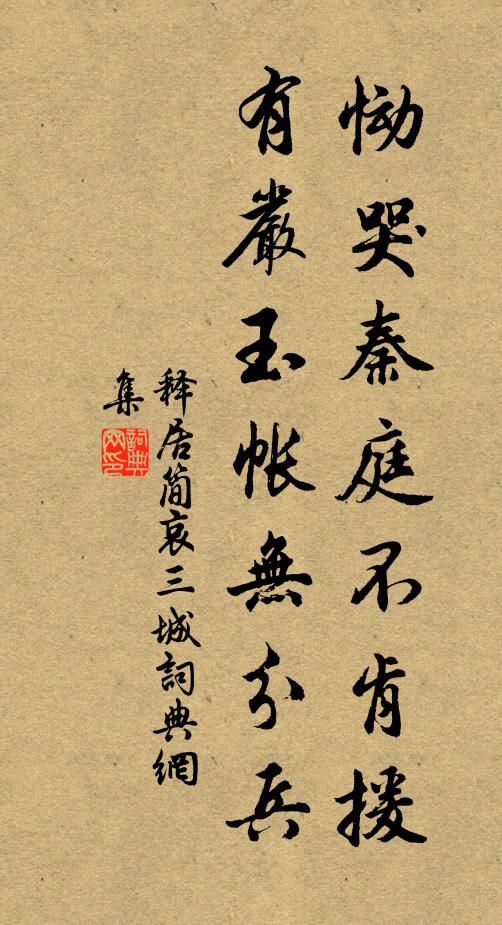 慟哭秦庭不肯援
有嚴玉帳無分兵
释居簡哀三城詞典網
集
詞典
网印